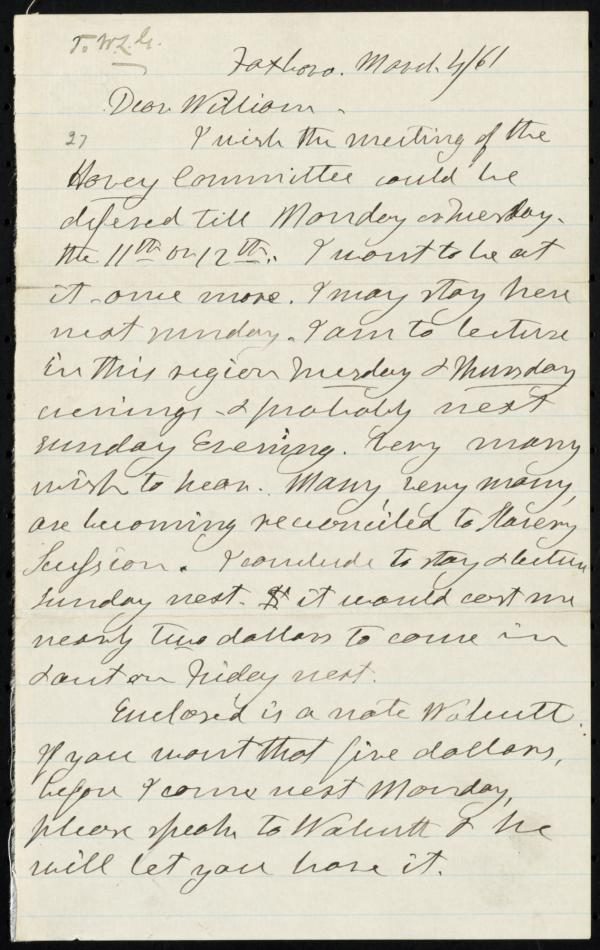 To W.L.G.
Foxboro. March 4/61
Dear William.
27
I wish the meeting of the
Hovey Committee could be
difered till Monday or Tuesday.
the 11th or 12th. I want to be at
it once more. I may stay here
next sunday. I am to lecture
in this region Tuesday & Thursday
evenings & probably next
sunday Evening. Very many
wish to hear. Many, very many,
are becoming reconciled to Slavery
Sucession. I conclude to stay & lecture
sunday next. & it would cost me
nearly two dollars to come in
& out on Friday next.
Enclosed is a note Walcutt.
If you want that five dollars,
before I come next Monday,
please speak to Walcutt & he
will let you have it.